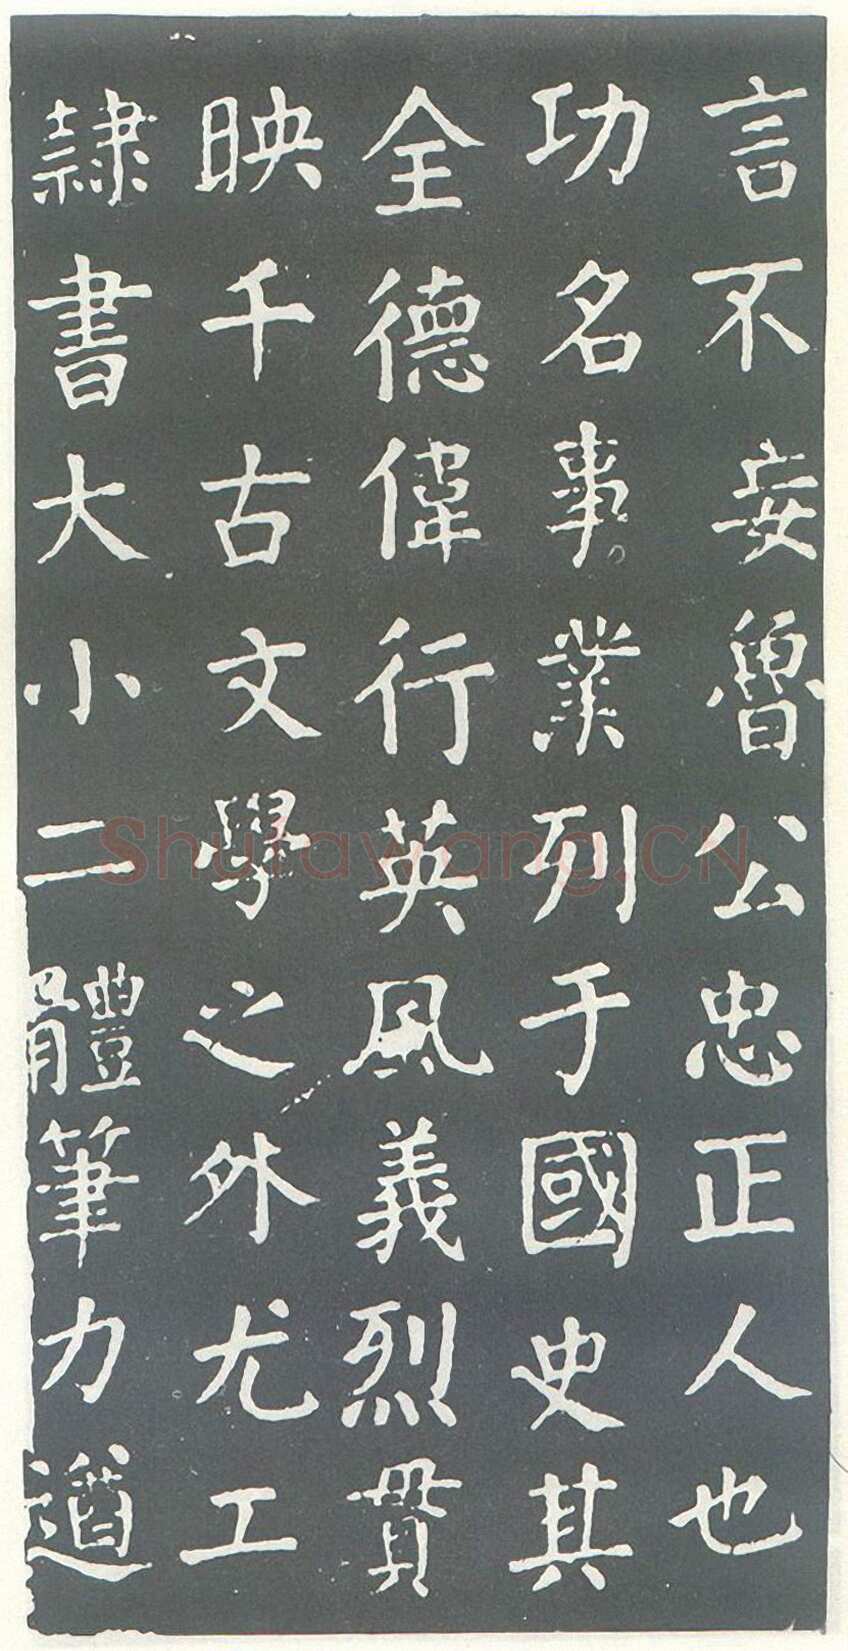 言不妄魯公忠正人也
功名事業列于國史其
全德偉行英風義烈貫
映千古文學之外尤工
隸書大小二體筆力遒
Shufawang.CN